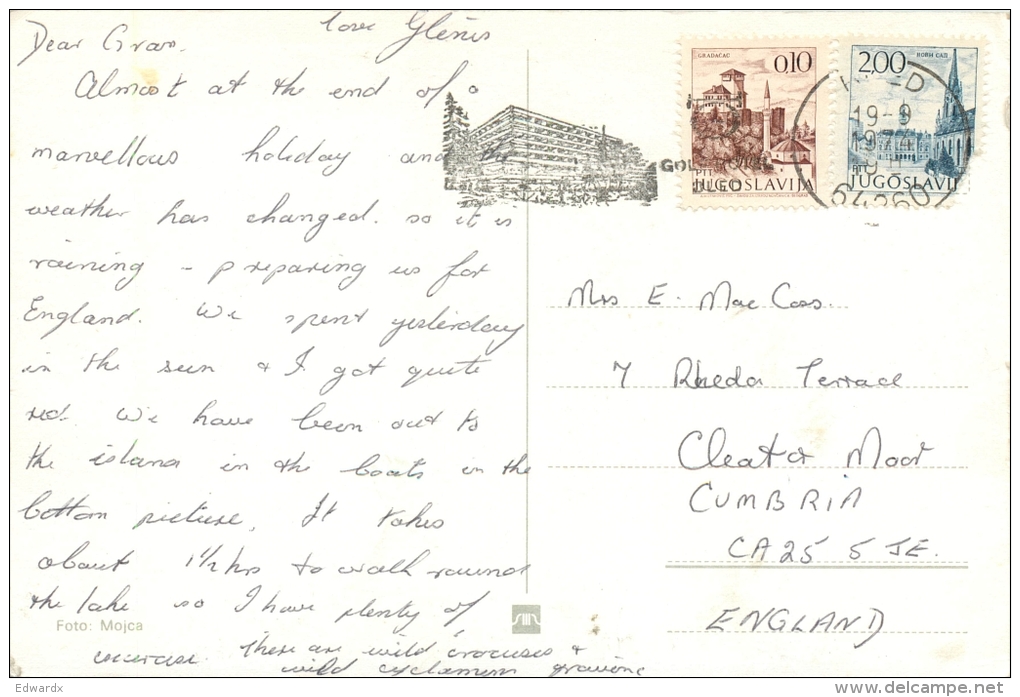 Dear Gran,
Almost at the end of a
marvellous holiday and the
weather has changed. so it is
raining - preparing us for
England. We spent yesterday
in the sun & I got quite
red. We have been out to
the island in the boats in the
bottom picture. It takes
about 1½ hrs to walk round
the lake so I have plenty of
exercise. There are wild crocuses &
wild cyclamen growing
love Glenis
Foto: Mojca
GRADAČAC
0,10
PTT
JUGOSLAVIJA
НОВИ САД
2,00
PTT
JUGOSLAVIJ
19-9
Mrs E. Mac
7 Rheda Terrace
Cleator Moor
CUMBRIA
CA25 5JE.
ENGLAND
Edwardx
delcampe.net